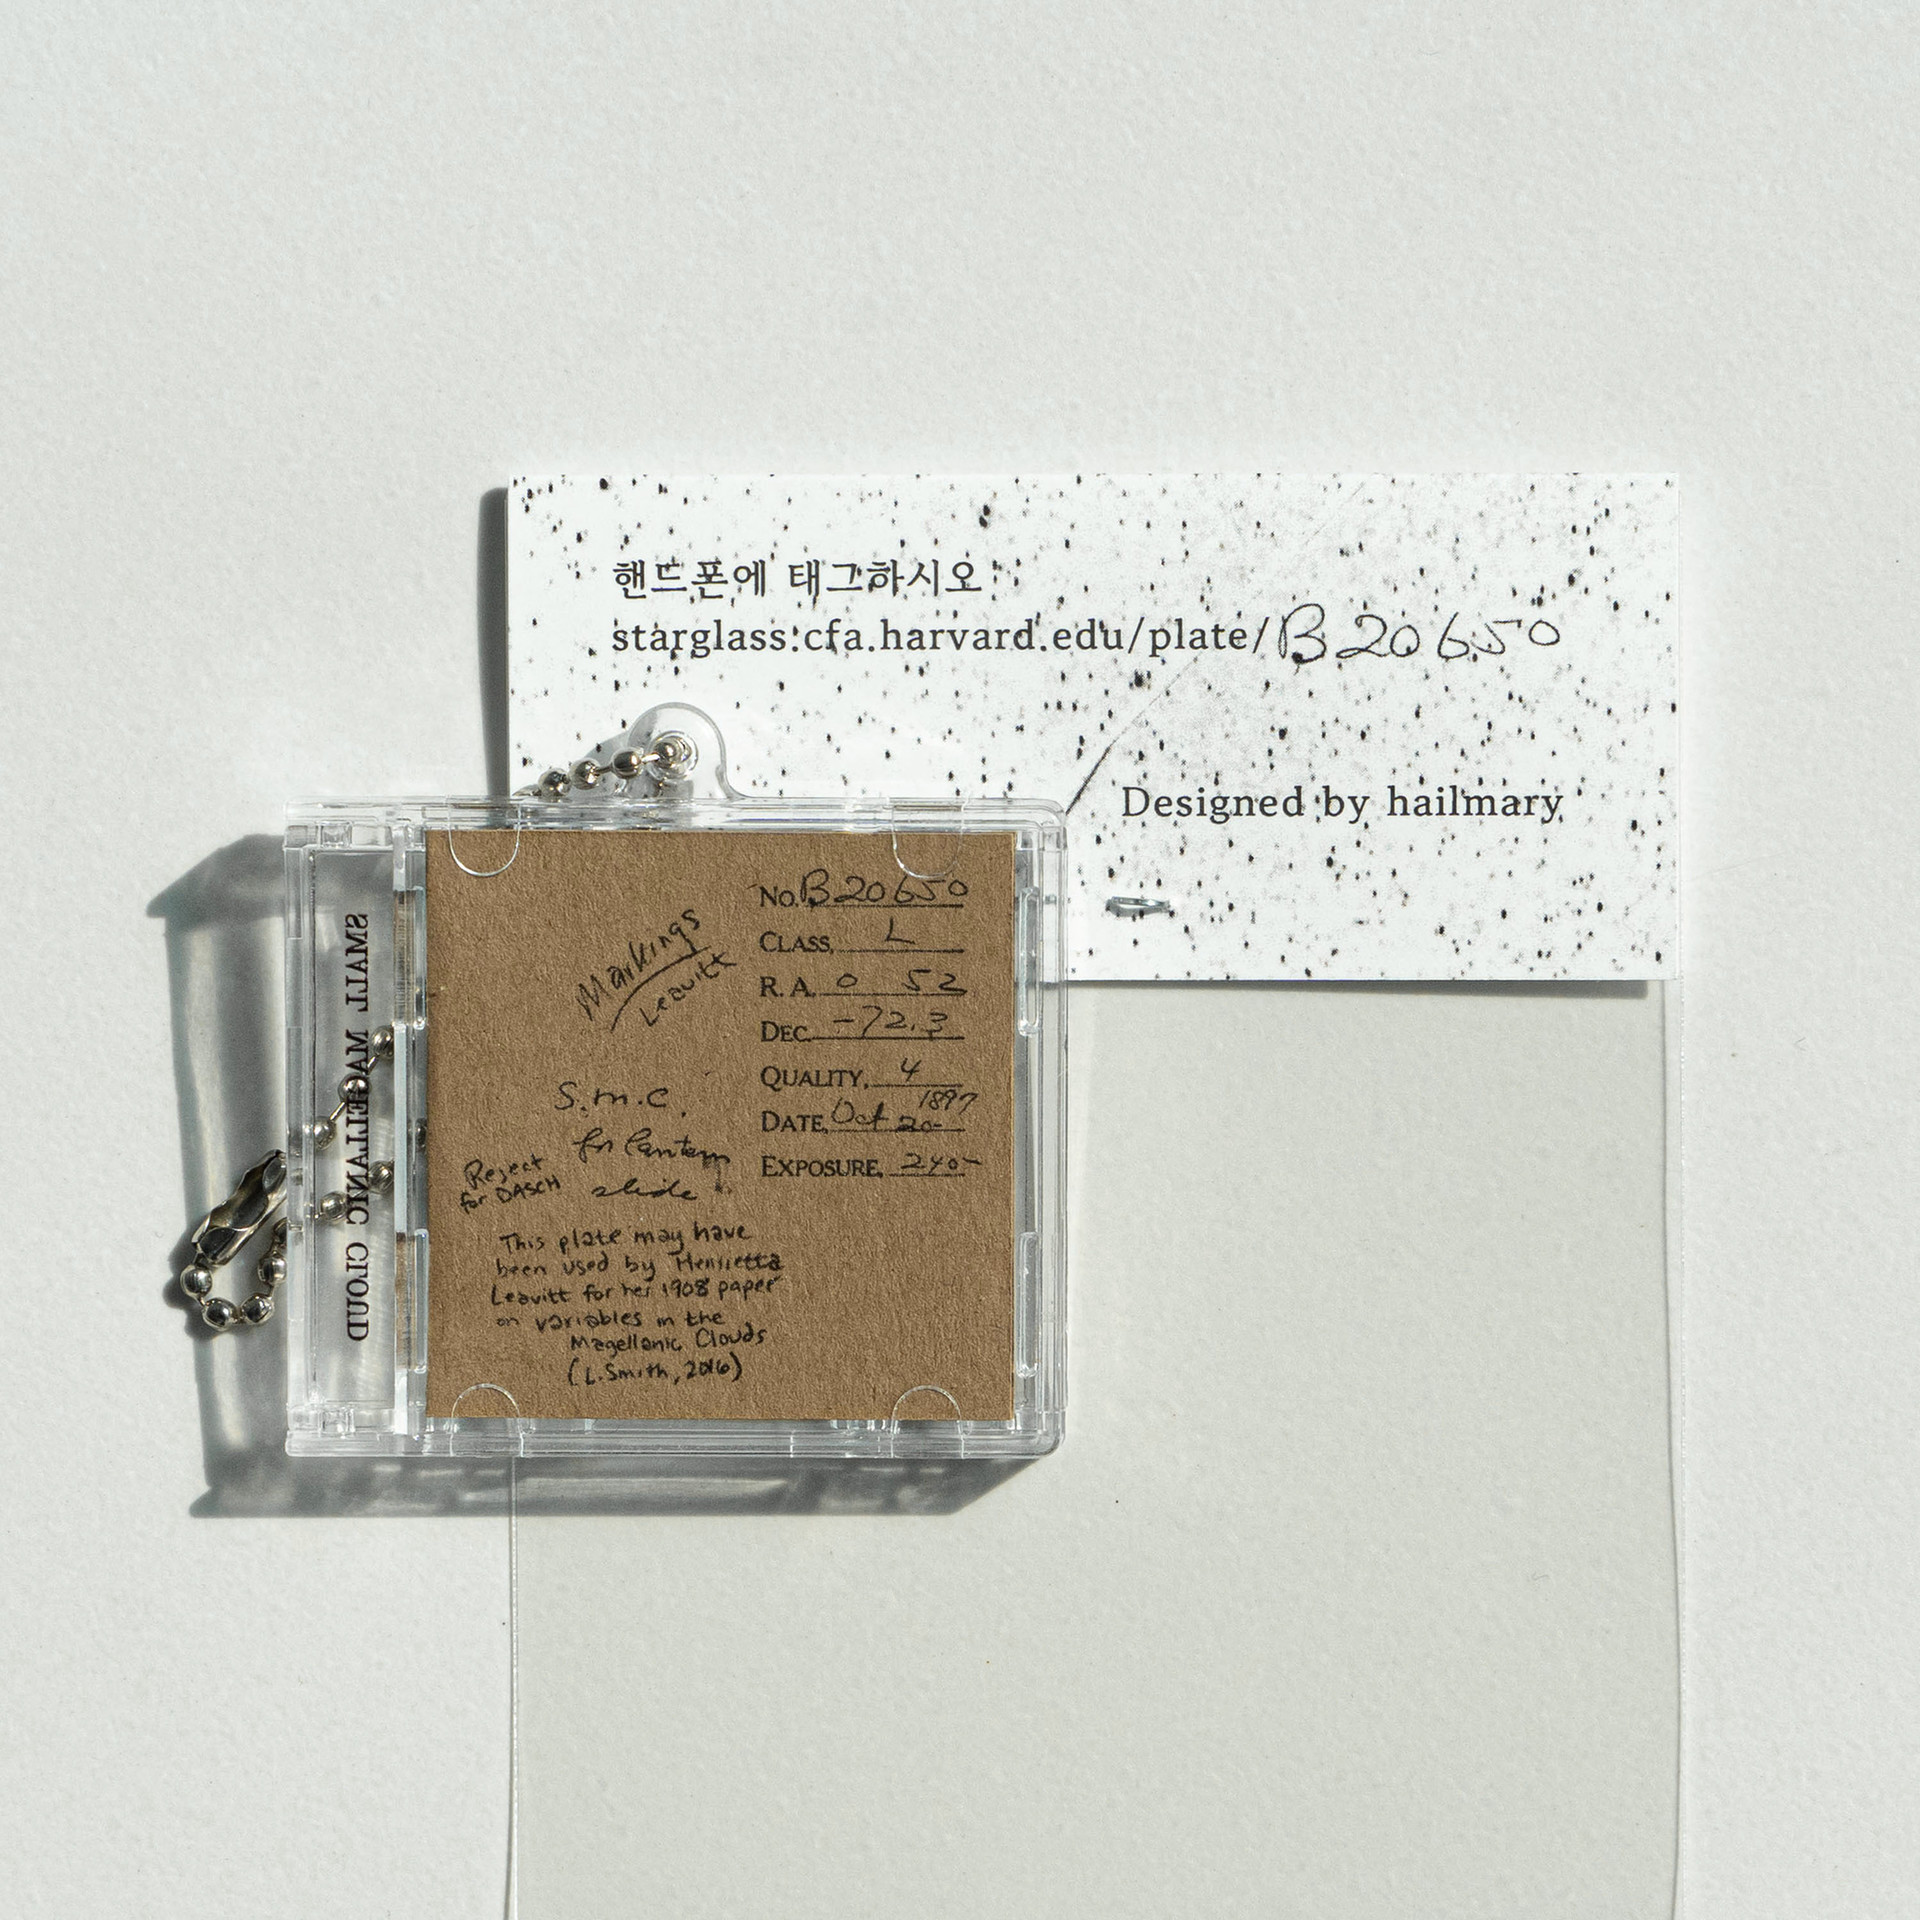 핸드폰에 태그하시오
starglass.cfa.harvard.edu/plate/B20650
Designed by hailmary
SMALL MAGELLANIC CLOUD
Markings
Leavitt
No. B20650
CLASS, L
R. A. 0 52
DEC. -72.3
QUALITY, 4
1897
DATE, Oct 20-
EXPOSURE, 240-
S.m.c.
for lantern
slide
Reject
for DASCH
This plate may have
been used by Henrietta
Leavitt for her 1908 paper
on variables in the
Magellanic Clouds
(L. Smith, 2016)